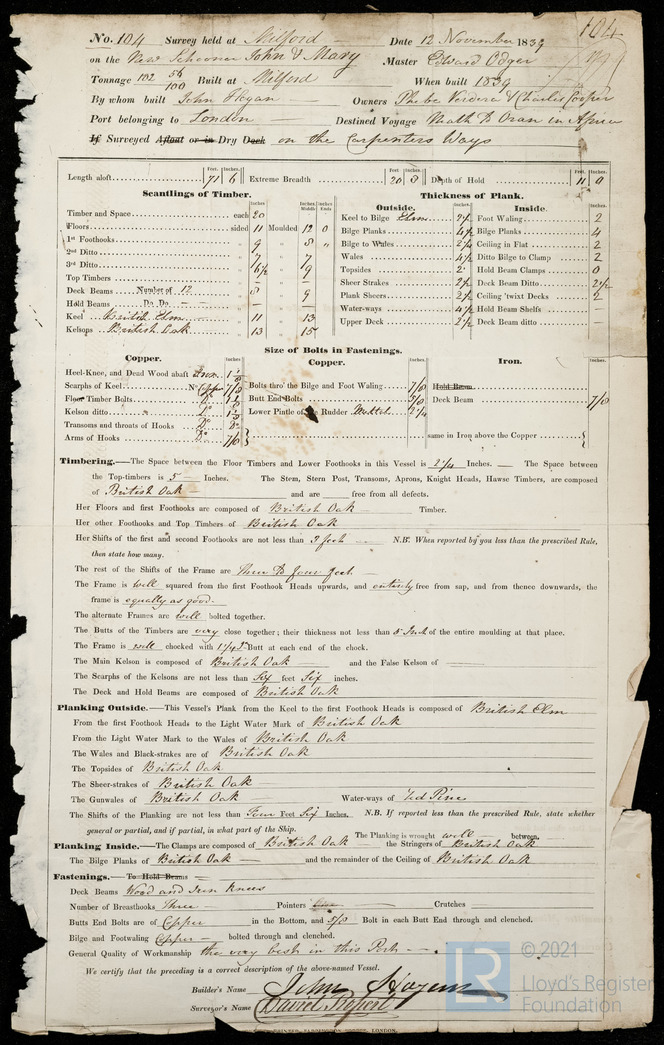 104
No. 104 Survey held at Milford Date 12 November 1839
on the New Schooner John & Mary Master Edward Odger
Tonnage 102 56/100 Built at Milford When built 1839
By whom built John Hogan Owners Charles Cooper
Port belonging to London Destined Voyage Oran in Africa
If Surveyed Afloat or in Dry Dock on the Carpenters Ways
Feet. Inches. Feet. Inches. Feet. Inches.
Length aloft 71 6 Extreme Breadth 20 8 Depth of Hold 11 0
Scantlings of Timber. Thickness of Plank.
Outside. Inside.
Timber and Space each 20 Keel to Bilge Elm 2½ Foot Waling 2
Floors sided 11 Moulded 12 0 Bilge Planks 4½ Bilge Planks 4
1st Foothooks 9 8 " Bilge to Wales 2¼ Ceiling in Flat 2
2nd Ditto 7 7 Wales 4½ Ditto Bilge to Clamp 2
3rd Ditto 6½ 9 Topsides 2 Hold Beam Clamps 0
Top Timbers — — Sheer Strakes 2½ Deck Beam Ditto 2½
Deck Beams Number of 12 8 9 Plank Sheers 2½ Ceiling 'twixt Decks 2
Hold Beams Do. Do. — — Water-ways 4½ Hold Beam Shelfs —
Keel British Elm 11 13 Upper Deck 2½ Deck Beam ditto —
Kelsons British Oak 13 15
Size of Bolts in Fastenings.
Copper. Copper. Iron.
Heel-Knee, and Dead Wood abaft Iron
Scarphs of Keel No. Copper 7/8 Bolts thro' the Bilge and Foot Waling 7/8 Hold Beam
Floor Timber Bolts Do Butt End Bolts 5/8 Deck Beam 7/8
Kelson ditto Do Lower Pintle of the Rudder Mettal 2¼
Transoms and throats of Hooks Do
Arms of Hooks Do 7/8 same in Iron above the Copper
Timbering.—The Space between the Floor Timbers and Lower Foothooks in this Vessel is 2¼ Inches. — The Space between
the Top-timbers is 5 Inches. The Stem, Stern Post, Transoms, Aprons, Knight Heads, Hawse Timbers, are composed
of British Oak and are free from all defects.
Her Floors and first Foothooks are composed of British Oak Timber.
Her other Foothooks and Top Timbers of British Oak
Her Shifts of the first and second Foothooks are not less than 3 feet N.B. When reported by you less than the prescribed Rule,
then state how many.
The rest of the Shifts of the Frame are Three to four feet
The Frame is well squared from the first Foothook Heads upwards, and entirely free from sap, and from thence downwards, the
frame is equally as good
The alternate Frames are well bolted together.
The Butts of the Timbers are very close together; their thickness not less than 5 Inch of the entire moulding at that place.
The Frame is well chocked with Butt at each end of the chock.
The Main Kelson is composed of British Oak and the False Kelson of
The Scarphs of the Kelsons are not less than Six feet Six inches.
The Deck and Hold Beams are composed of British Oak
Planking Outside.—This Vessel's Plank from the Keel to the first Foothook Heads is composed of British Elm
From the first Foothook Heads to the Light Water Mark of British Oak
From the Light Water Mark to the Wales of British Oak
The Wales and Black-strakes are of British Oak
The Topsides of British Oak
The Sheer-strakes of British Oak
The Gunwales of British Oak Water-ways of Red Pine
The Shifts of the Planking are not less than Four Feet Six Inches. N.B. If reported less than the prescribed Rule, state whether
general or partial, and if partial, in what part of the Ship. The Planking is wrought well between.
Planking Inside.—The Clamps are composed of British Oak the Stringers of British Oak
The Bilge Planks of British Oak and the remainder of the Ceiling of British Oak
Fastenings.—To Hold Beams
Deck Beams Wood and Iron Knees
Number of Breasthooks Three Pointers Crutches
Butts End Bolts are of Copper in the Bottom, and 5/8 Bolt in each Butt End through and clenched.
Bilge and Footwaling Copper bolted through and clenched.
General Quality of Workmanship the very best in this Port
We certify that the preceding is a correct description of the above-named Vessel.
Builder's Name John Hogan
Surveyor's Name David Propert
LONDON.
LR © 2021
Lloyd's Register
Foundation